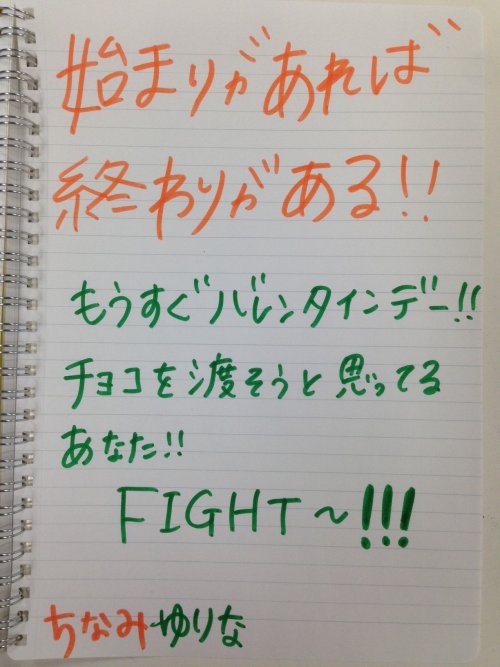 始まりがあれば
終わりがある!!
もうすぐバレンタインデー!!
チョコを渡そうと思ってる
あなた!!
FIGHT～!!!
ちなみゆりな